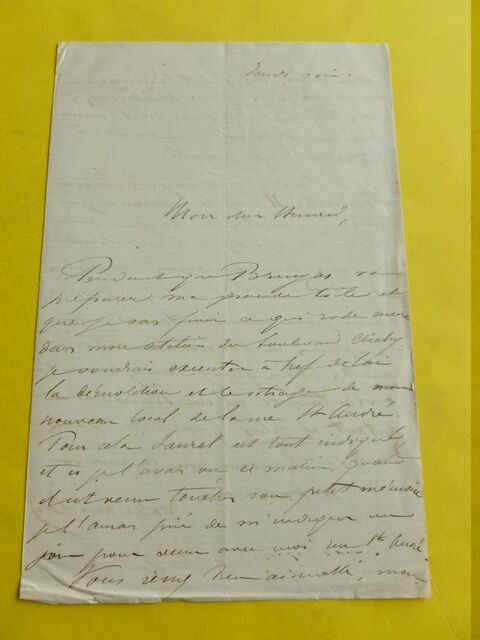 Jeudi soir.
Mon cher
Pendant que Bruyas va
préparer ma grande toile et
que je vais finir ce qui
dans mon atelier du boulevard Clichy
je voudrais executer à bref delai
la démolition et le de mon
nouveau local de la rue St André.
Pour cela Laurel est tout indiqué
et si je l'avais vu ce matin, quand
il est venu toucher son petit mémoire
je l'aurais prié de m'indiquer un
jour pour venir avec moi rue St André.
Vous bien aimable, mon